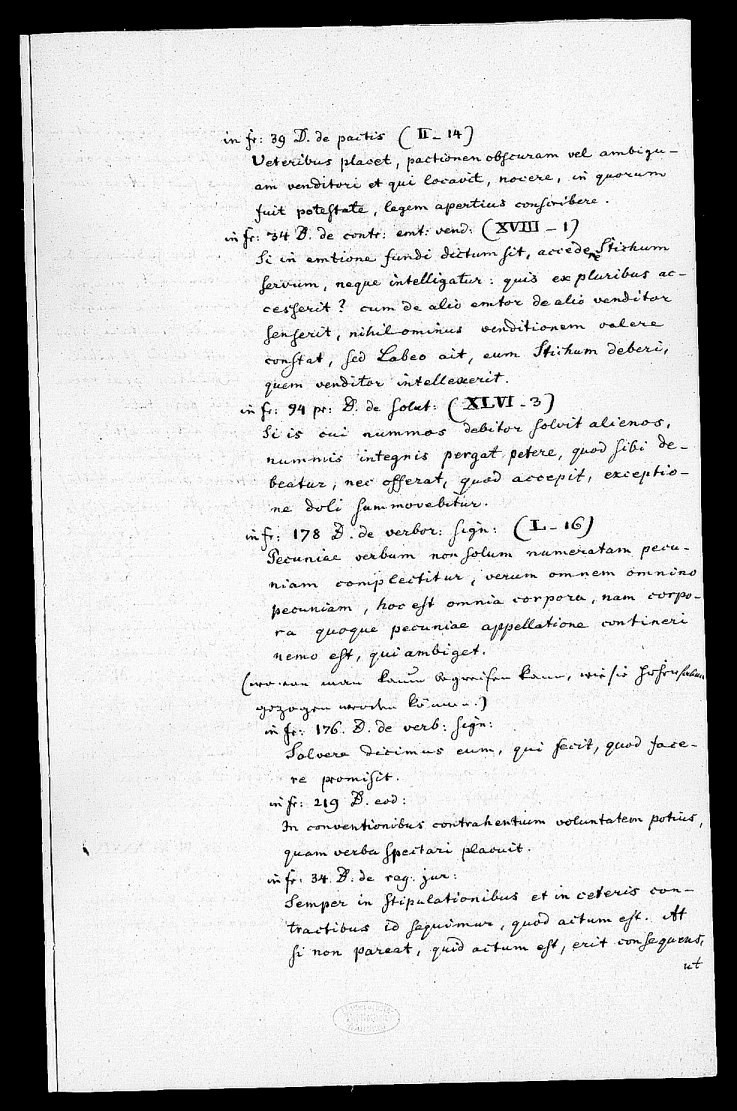 in fr: 39 D. de pactis (II – 14)
Veteribus placet, pactionen obscuram vel ambigu–
am venditori et qui locavit, nocere, in quorum
fuit potestate, legem apertius conscribere.
in fr: 34 D. de contr: emt: vend: (XVIII – 1)
Si in emtione fundi dictum sit, accedere Stichum
servum, neque intelligatur: quis ex pluribus ac–
cesserit? cum de alio emtor de alio venditor
senserit, nihilominus venditionem valere
constat, sed Labeo ait, eum Stichum deberi,
quem venditor intellexerit.
in fr: 94 pr: D. de solut: (XLVI – 3)
Si is cui nummos debitor solvit alienos,
nummis integris pergat petere, quod sibi de–
beatur, nec offerat, quod accepit, exceptio–
ne doli summovebitur.
in fr: 178 D. de verbor: sign: (L – 16)
Pecuniae verbum non solum numeratam pecu–
niam complectitur, verum omnem omnino
pecuniam, hoc est omnia corpora, nam corpo–
ra quoque pecuniae appellatione contineri
nemo est, qui ambiget.
(wovon man kaum begreifen kann, wie sie
gezogen werden können.)
in fr: 176. D. de verb: sign:
Solvere dicimus eum, qui fecit, quod face–
re promisit.
in fr: 219 D. eod:
In conventionibus contrahentum voluntatem potius,
quam verba spectari placuit.
in fr: 34. D. de reg. jur:
Semper in stipulationibus et in ceteris con–
tractibus id sequimur, quod actum est. At
si non pareat, quid actum est, erit consequens,
ut